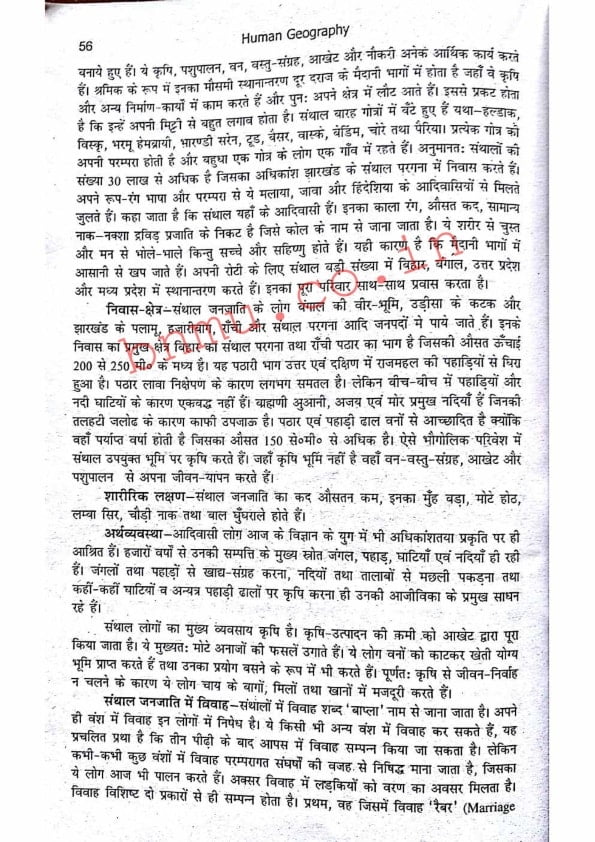 Human Geography
56
बनाये हुए हैं। ये कृषि, पशुपालन, वन, वस्तु-संग्रह, आखेट और नौकरी अनेक आर्थिक कार्य करते
हैं। श्रमिक के रूप में इनका मौसमी स्थानान्तरण दूर दराज के मैदानी भागों में होता है जहाँ वे कृषि
और अन्य निर्माण-कार्यो में काम करते हैं और पुनः अपने क्षेत्र में लौट आते हैं। इससे प्रकट होता
है कि इन्हें अपनी मिट्टी से बहुत लगाव होता है। संथाल बारह गोत्रों में बँटे हुए हैं यथा—हल्डाक,
विस्कृ, भरमू हेमब्रायी, भारण्डी सरेन, टूड, बैसर, वास्के, बेडिम, चोरे तथा पैरिया। प्रत्येक गोत्र की
अपनी परम्परा होती है और बहुधा एक गोत्र के लोग एक गाँव में रहते हैं। अनुमानतः संथालों की
संख्या 30 लाख से अधिक है जिसका अधिकांश झारखंड के संथाल परगना में निवास करते हैं।
अपने रूप-रंग भाषा और परम्परा से ये मलाया, जावा और हिंदेशिया के आदिवासियों से मिलते
जुलते हैं। कहा जाता है कि संथाल यहाँ के आदिवासी हैं। इनका काला रंग, औसत कद, सामान्य
नाक-नक्शा द्रविड़ प्रजाति के निकट है जिसे कोल के नाम से जाना जाता है। ये शरीर से चुस्त
और मन से भोले-भाले किन्तु सच्चे और सहिष्णु होते हैं। यही कारण है कि मैदानी भागों में
आसानी से खप जाते हैं। अपनी रोटी के लिए संथाल बड़ी संख्या में बिहार, बंगाल, उत्तर प्रदेश
और मध्य प्रदेश में स्थानान्तरण करते हैं। इनका पूरा परिवार साथ-साथ प्रवास करता है।
निवास-क्षेत्र—संथाल जनजाति के लोग बंगाल की वीर-भूमि, उड़ीसा के कटक और
झारखंड के पलामू, हजारीबाग, राँची और संथाल परगना आदि जनपदों में पाये जाते हैं। इनके
निवास का प्रमुख क्षेत्र बिहार का संथाल परगना तथा राँची पठार का भाग है जिसकी औसत ऊँचाई
200 से 250 मी० के मध्य है। यह पठारी भाग उत्तर एवं दक्षिण में राजमहल की पहाड़ियों से घिरा
हुआ है। पठार लावा निक्षेपण के कारण लगभग समतल है। लेकिन बीच-बीच में पहाड़ियों और
नदी घाटियों के कारण एकबद्ध नहीं हैं। ब्राह्मणी अुआनी, अजय एवं मोर प्रमुख नदियाँ हैं जिनकी
तलहटी जलोढ के कारण काफी उपजाऊ है। पठार एवं पहाड़ी ढाल वनों से आच्छादित है क्योंकि
वहाँ पर्याप्त वर्षा होती है जिसका औसत 150 से०मी० से अधिक है। ऐसे भौगोलिक परिवेश में
संथाल उपयुक्त भूमि पर कृषि करते हैं। जहाँ कृषि भूमि नहीं है वहाँ वन-वस्तु-संग्रह, आखेट और
पशुपालन से अपना जीवन-यापन करते हैं।
शारीरिक लक्षण—संथाल जनजाति का कद औसतन कम, इनका मुँह बड़ा, मोटे होठ,
लम्बा सिर, चौड़ी नाक तथा बाल घुँघराले होते हैं।
अर्थव्यवस्था—आदिवासी लोग आज के विज्ञान के युग में भी अधिकांशतया प्रकृति पर ही
आश्रित हैं। हजारों वर्षों से उनकी सम्पत्ति के मुख्य स्रोत जंगल, पहाड़, घाटियाँ एवं नदियाँ ही रही
हैं। जंगलों तथा पहाड़ों से खाद्य-संग्रह करना, नदियों तथा तालाबों से मछली पकड़ना तथा
कहीं-कहीं घाटियों व अन्यत्र पहाड़ी ढालों पर कृषि करना ही उनकी आजीविका के प्रमुख साधन
रहे हैं।
संथाल लोगों का मुख्य व्यवसाय कृषि है। कृषि-उत्पादन की कमी को आखेट द्वारा पूरा
किया जाता है। ये मुख्यतः मोटे अनाजों की फसलें उगाते हैं। ये लोग वनों को काटकर खेती योग्य
भूमि प्राप्त करते हैं तथा उनका प्रयोग बसने के रूप में भी करते हैं। पूर्णतः कृषि से जीवन-निर्वाह
न चलने के कारण ये लोग चाय के बागों, मिलों तथा खानों में मजदूरी करते हैं।
संथाल जनजाति में विवाह—संथालों में विवाह शब्द 'बाप्ला' नाम से जाना जाता है। अपने
ही वंश में विवाह इन लोगों में निषेध है। ये किसी भी अन्य वंश में विवाह कर सकते हैं, यह
प्रचलित प्रथा है कि तीन पीढ़ी के बाद आपस में विवाह सम्पन्न किया जा सकता है। लेकिन
कभी-कभी कुछ वंशों में विवाह परम्परागत संघर्षों की वजह से निषिद्ध माना जाता है, जिसका
ये लोग आज भी पालन करते हैं। अक्सर विवाह में लड़कियों को वरण का अवसर मिलता है।
विवाह विशिष्ट दो प्रकारों से ही सम्पन्न होता है। प्रथम, वह जिसमें विवाह 'रैबर' (Marriage
bnmu.co.in